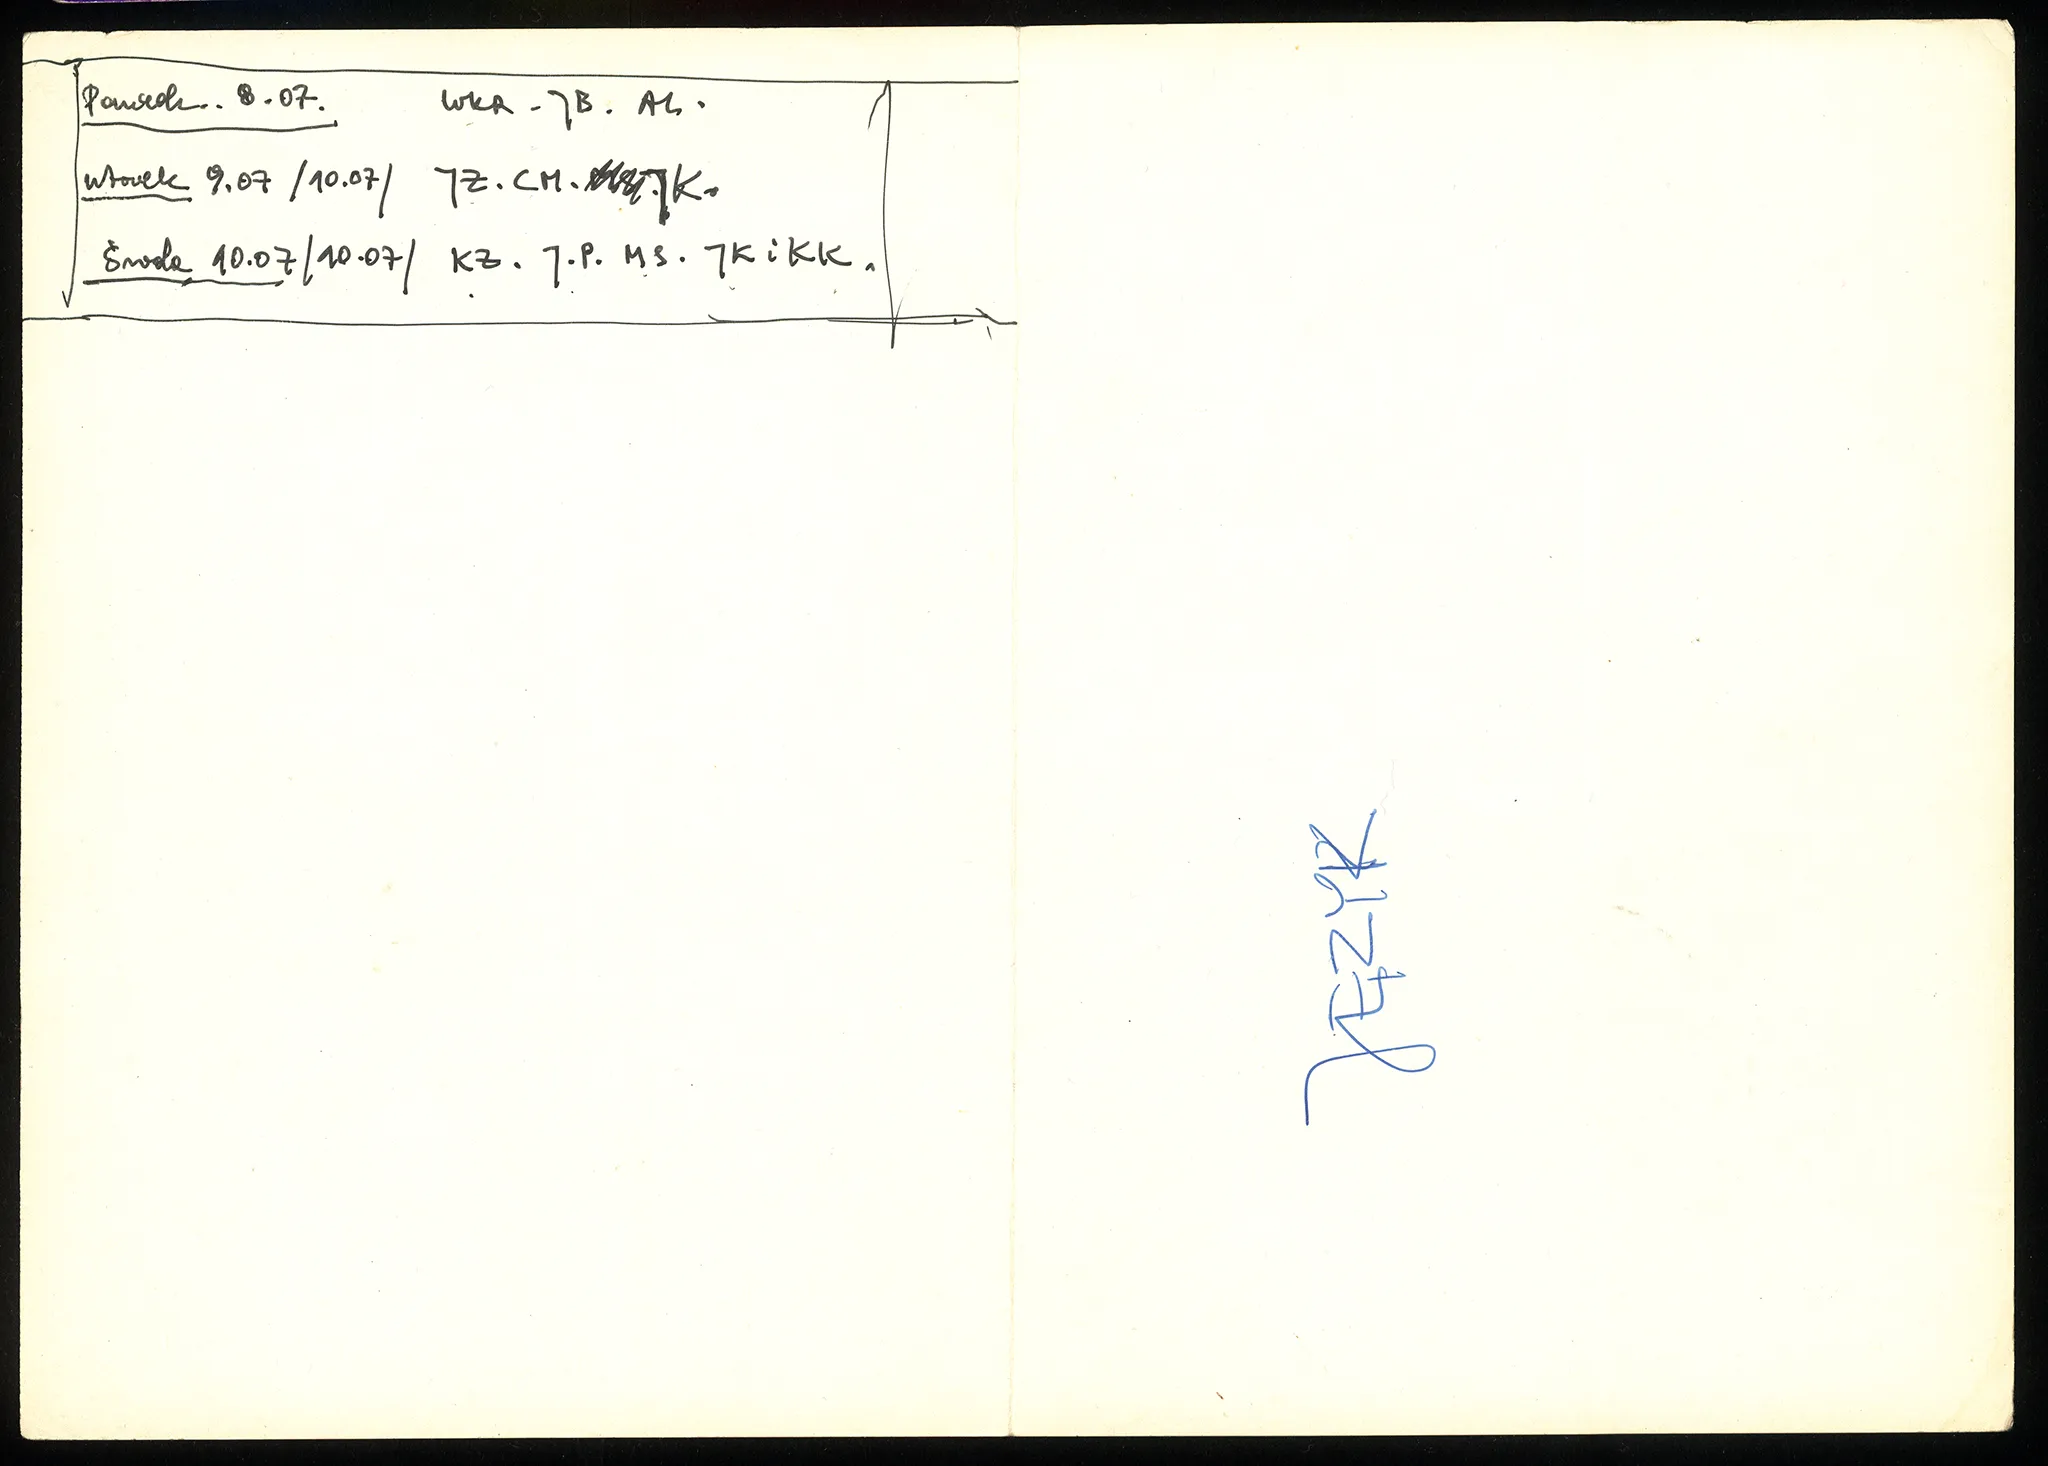 Poniedz.. 8.07. WKA - JB. AL.
wtorek 9.07 /10.07/ JZ. CM. JK.
Środa 10.07 /10.07/ KZ. J.P. MS. JK i KK.
JĘZYK